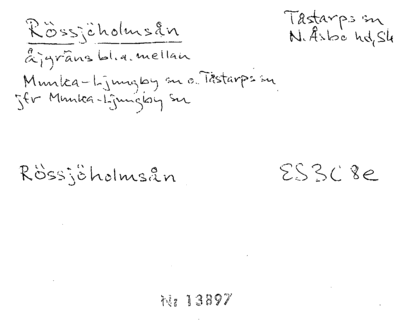 Rössjöholmsån
Tåstarps sn
N. Åsbo hd, Sk
å, gräns bl.a. mellan
Munka-Ljungby sn o. Tåstarps sn
jfr Munka-Ljungby sn
Rössjöholmsån
ES 3C 8e
Nr 13897